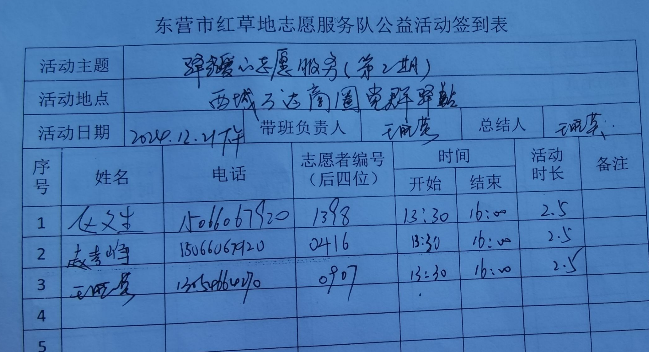 东营市红草地志愿服务队公益活动签到表
活动主题 驿站爱心志愿服务(第2期)
活动地点 西城万达商圈党群驿站
活动日期 2024.12.21下午 带班负责人 王丽英 总结人 王丽英
序号 姓名 电话 志愿者编号(后四位) 时间 开始 结束 活动时长 备注
1 15066067920 1398 13:30 16:00 2.5
2 15066067920 0416 13:30 16:00 2.5
3 王丽英 0907 13:30 16:00 2.5
4
5